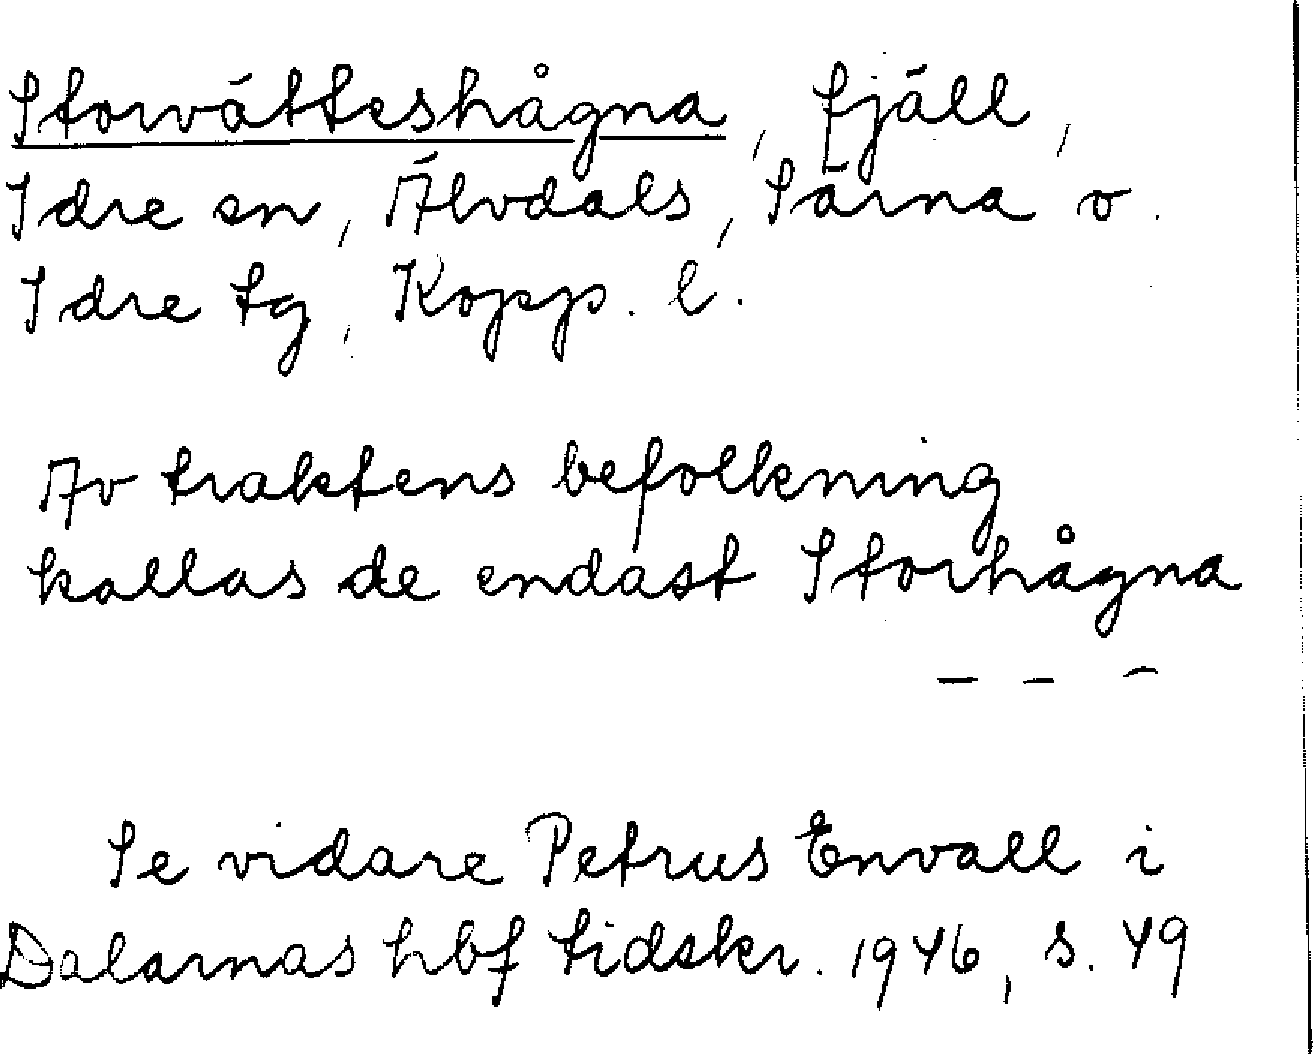 Storvätteshågna, fjäll,
Idre sn, Älvdals, Särna o.
Idre tg, Kopp. l.
Av traktens befolkning
kallas de endast Storhågna
– – –
Se vidare Petrus Envall i
Dalarnas hbf tidskr. 1946, s. 49